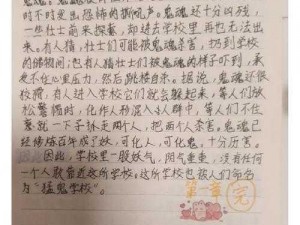 时不时发出恐怖的嘶吼声。鬼魂还十分凶残，
一些壮士前来探险，却进去学校里再也无法出
来。有人猜，壮士们可能被鬼魂杀害，扔到学校
的储物间；也有人猜壮士们被鬼魂的样子吓到，承
受不住心里压力，然后跳楼自杀。据说，鬼魂还很
狡猾，有人进入学校它们就会躲起来，等人们放
松警惕时，化作人形混入人群中，等人们不住
意就一下子扑走两个人，把两个人杀害。鬼魂已
经修炼百年成了妖，可化人，可化鬼，十分厉害。
因此，学校里一股妖气，阴气重重，没有任何
一个人敢靠近这所学校。这所学校也被人们命名
为“猛鬼学校”。
第一章 完